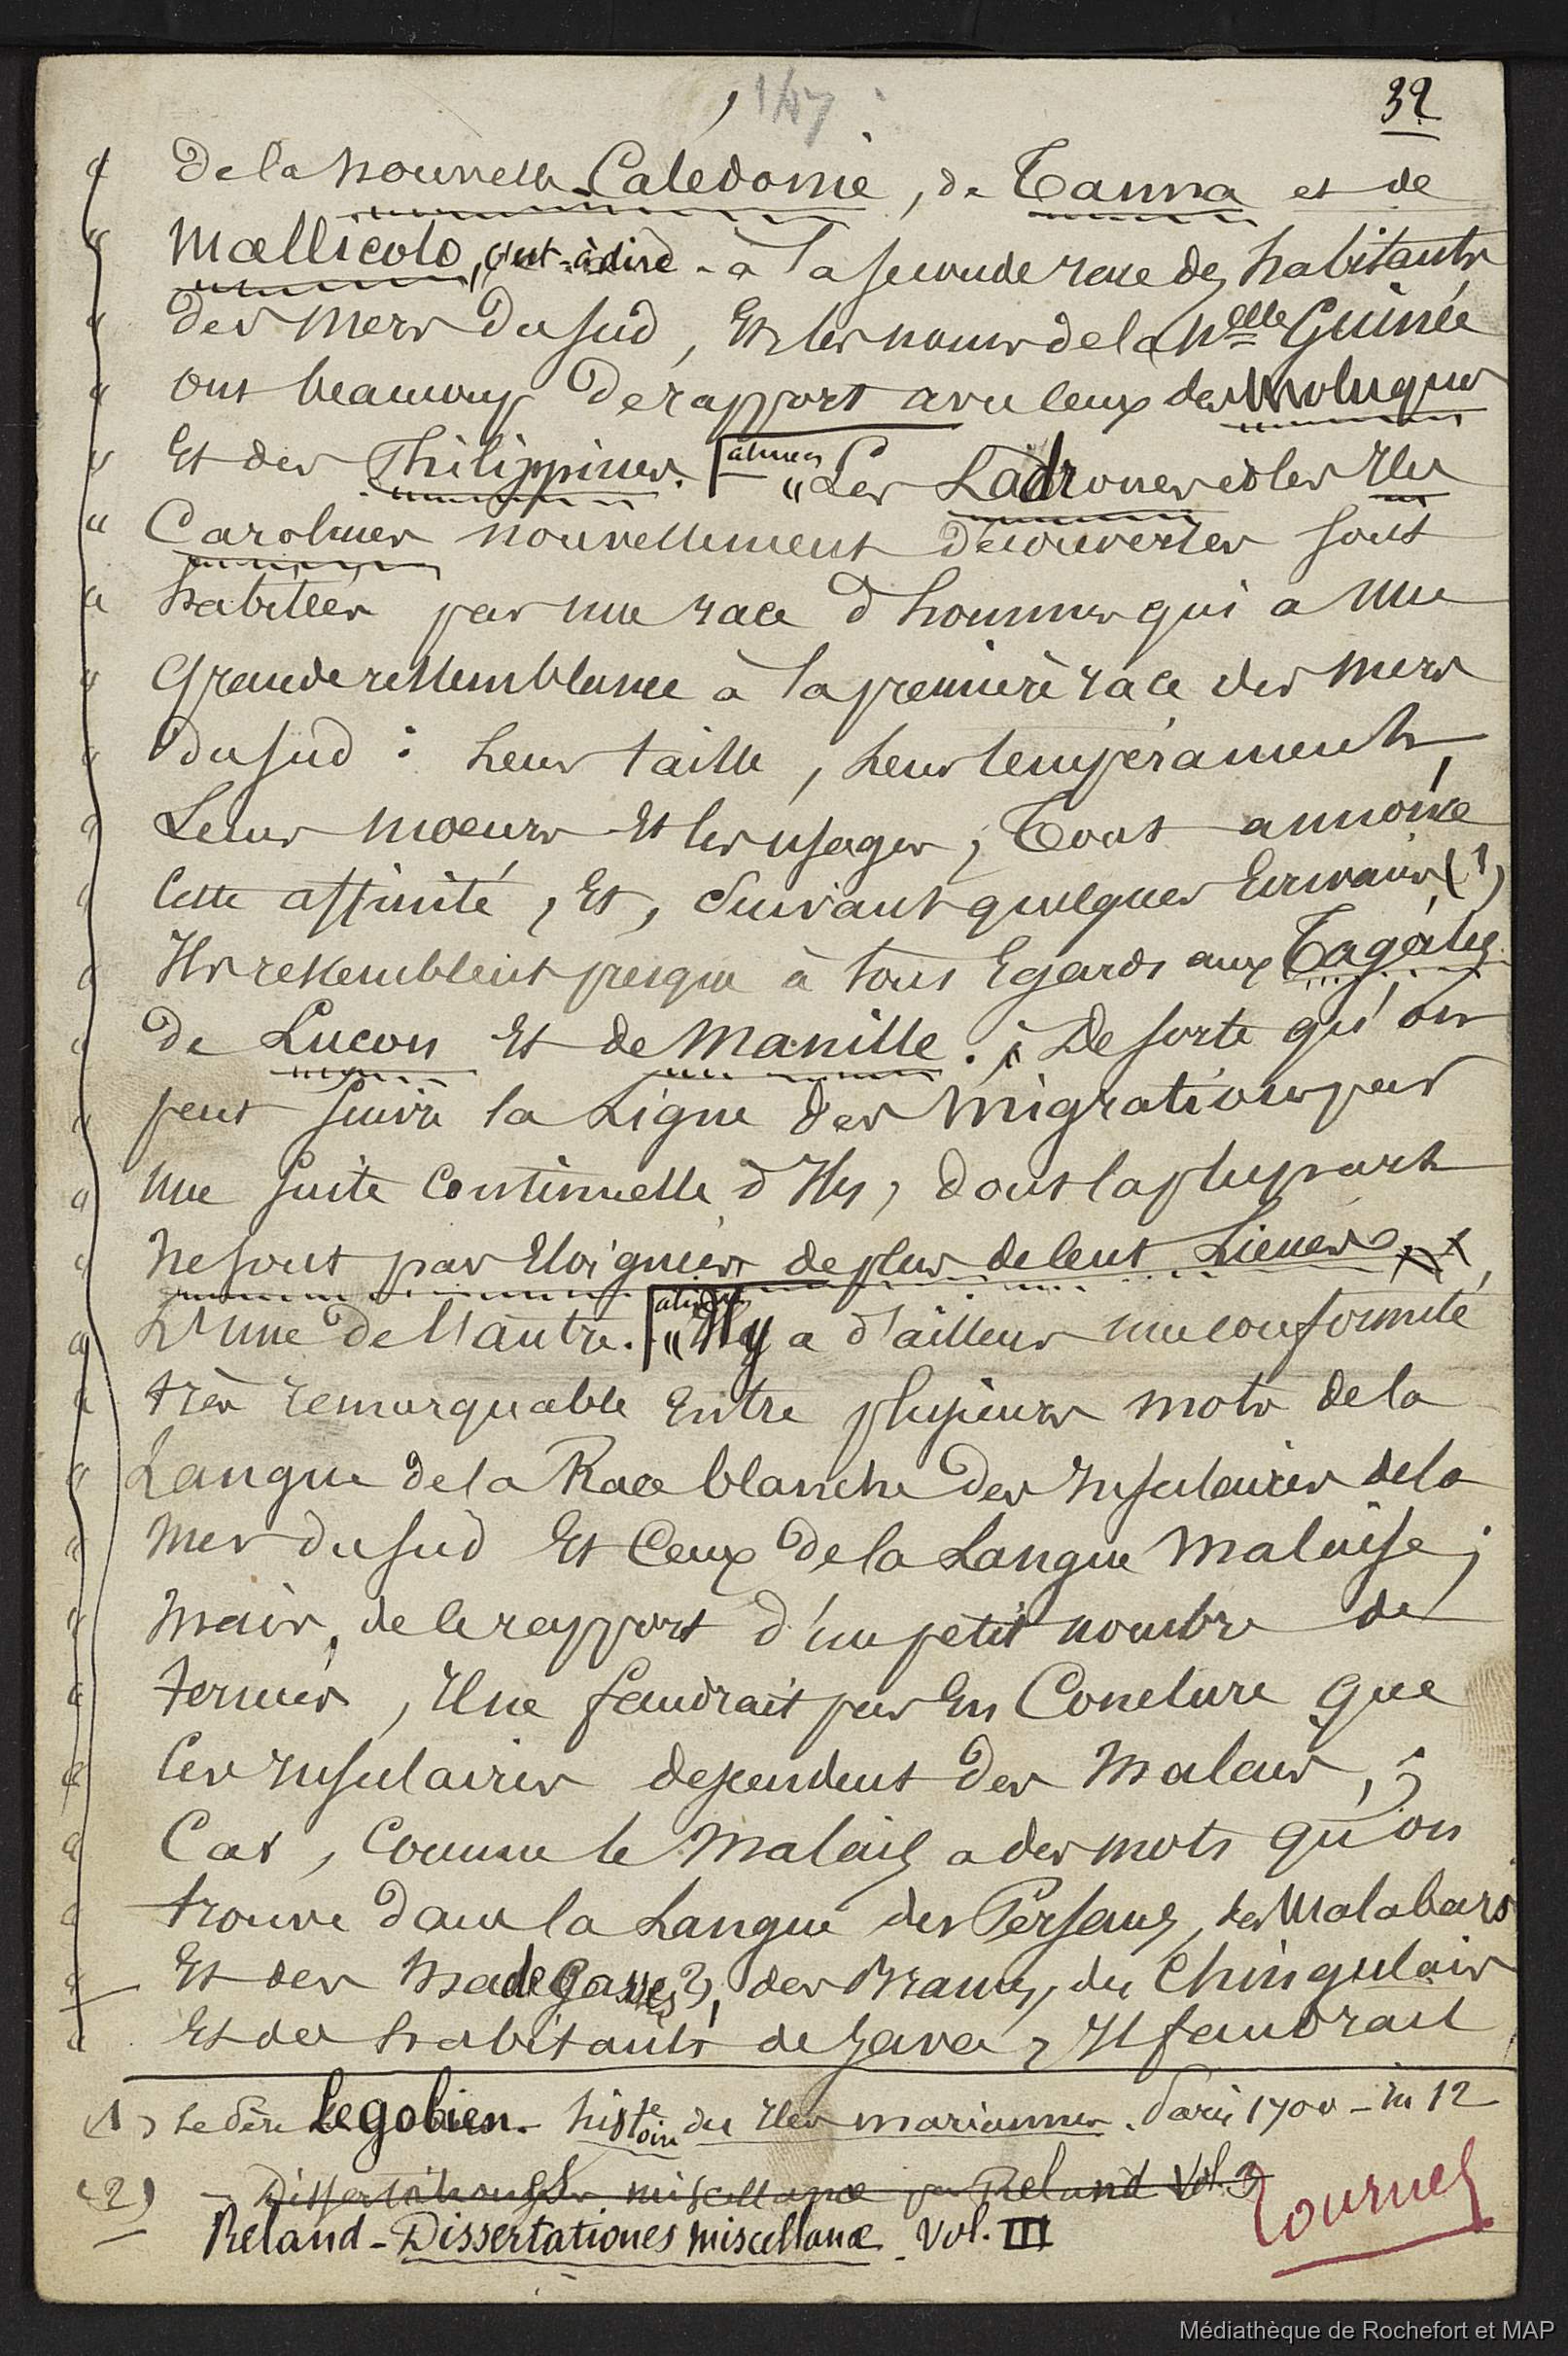 1/47
32
" de la nouvelle Calédonie, de Tanna et de
" Mallicolo, c'est-à-dire - à la seconde race des habitants
" des mers du sud, Et les noirs de la Nelle Guinée
" ont beaucoup de rapport avec ceux des Moluques
" Et des Philippines. [alinea "Les Ladrones et les Iles
" Carolines nouvellement découvertes sont
" habitées par une race d'hommes qui a une
" Grande ressemblance à la première race des mers
" du sud : Leur taille, Leur tempérament,
" Leurs moeurs Et les usages, Tout annonce
" Cette affinité, Et, Suivant quelques Ecrivains (1)
" Ils ressemblent presque à tous Egards aux Tagales
" de Luçon Et de Manille. ; De sorte qu'on
" peut suivre la Ligne des migrations par
" une suite continuelle d'Iles, dont la plupart
" ne sont pas Eloignées de plus de Cent Lieues
" L'une de l'autre. [alinea "Il y a d'ailleurs une conformité
" très remarquable Entre plusieurs mots de la
" Langue de la Race blanche des Insulaires de la
" Mer du Sud Et Ceux de la Langue Malaise ;
" Mais, de le rapport d'un petit nombre de
" termes, Il ne faudrait pas En Conclure que
" Ces Insulaires descendent des Malais, ;
" Car, Comme le Malais a des mots qu'on
" trouve dans la Langue des Persans, des Malabars
" Et des Madegasses 2), des Brames, des Chingulais
" Et des habitants de Java, Il faudrait
(1) Le Père Legobien. - histoire des Iles mariannes. Paris 1700 - in 12
(2) - Dissertationes miscellanæ par Reland Vol. 3
Reland - Dissertationes miscellanæ - Vol. III
Tournez
Médiathèque de Rochefort et MAP